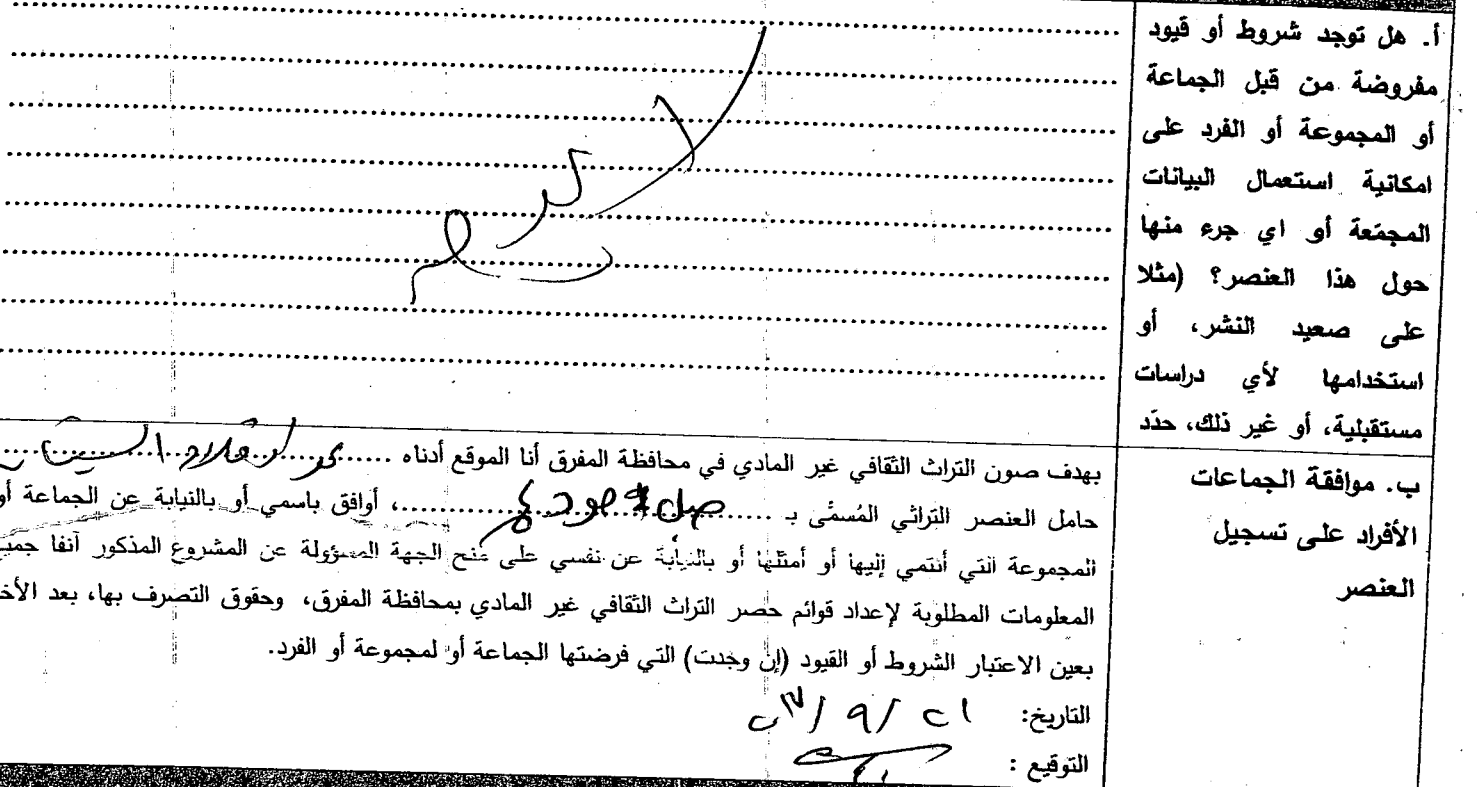 أ. هل توجد شروط أو قيود
مفروضة من قبل الجماعة
أو المجموعة أو الفرد على
امكانية استعمال البيانات
المجمّعة أو اي جرء منها
حول هذا العنصر؟ (مثلا
على صعيد النشر، أو
استخدامها لأي دراسات
مستقبلية، أو غير ذلك، حدّد
لا يوجد
ب. موافقة الجماعات
الأفراد على تسجيل
العنصر
بهدف صون التراث الثقافي غير المادي في محافظة المفرق أنا الموقع أدناه
حامل العنصر التراثي المُسمَّى بـ ، أوافق باسمي أو بالنيابة عن الجماعة أو
المجموعة التي أنتمي إليها أو أمثلها أو بالنيابة عن نفسي على منح الجهة المسؤولة عن المشروع المذكور آنفا جميع
المعلومات المطلوبة لإعداد قوائم حصر التراث الثقافي غير المادي بمحافظة المفرق، وحقوق التصرف بها، بعد الأخذ
بعين الاعتبار الشروط أو القيود (إن وجدت) التي فرضتها الجماعة أو لمجموعة أو الفرد.
التاريخ: ٢١ / ٩ /
التوقيع :